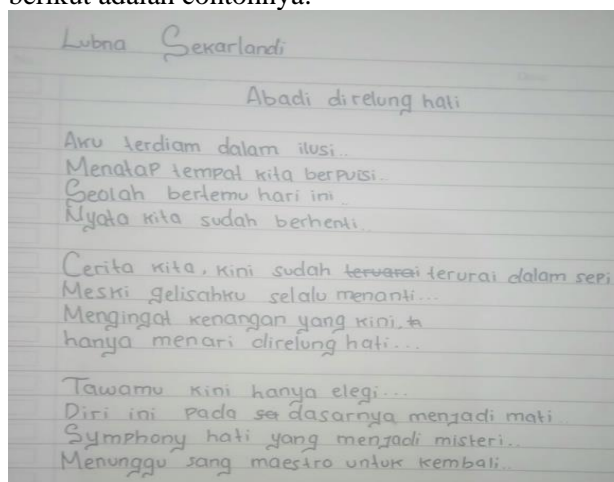 berikut adalah contohnya:
Lubna Sekarlandi
Abadi direlung hati
Aku terdiam dalam ilusi..
Menatap tempat kita berpuisi..
Seolah bertemu hari ini..
Nyata kita sudah berhenti..
Cerita kita, kini sudah terurai dalam sepi
Meski gelisahku selalu menanti...
Mengingat kenangan yang kini,
hanya menari direlung hati....
Tawamu kini hanya elegi...
Diri ini pada dasarnya menjadi mati..
Symphony hati yang menjadi misteri..
Menunggu sang maestro untuk kembali..